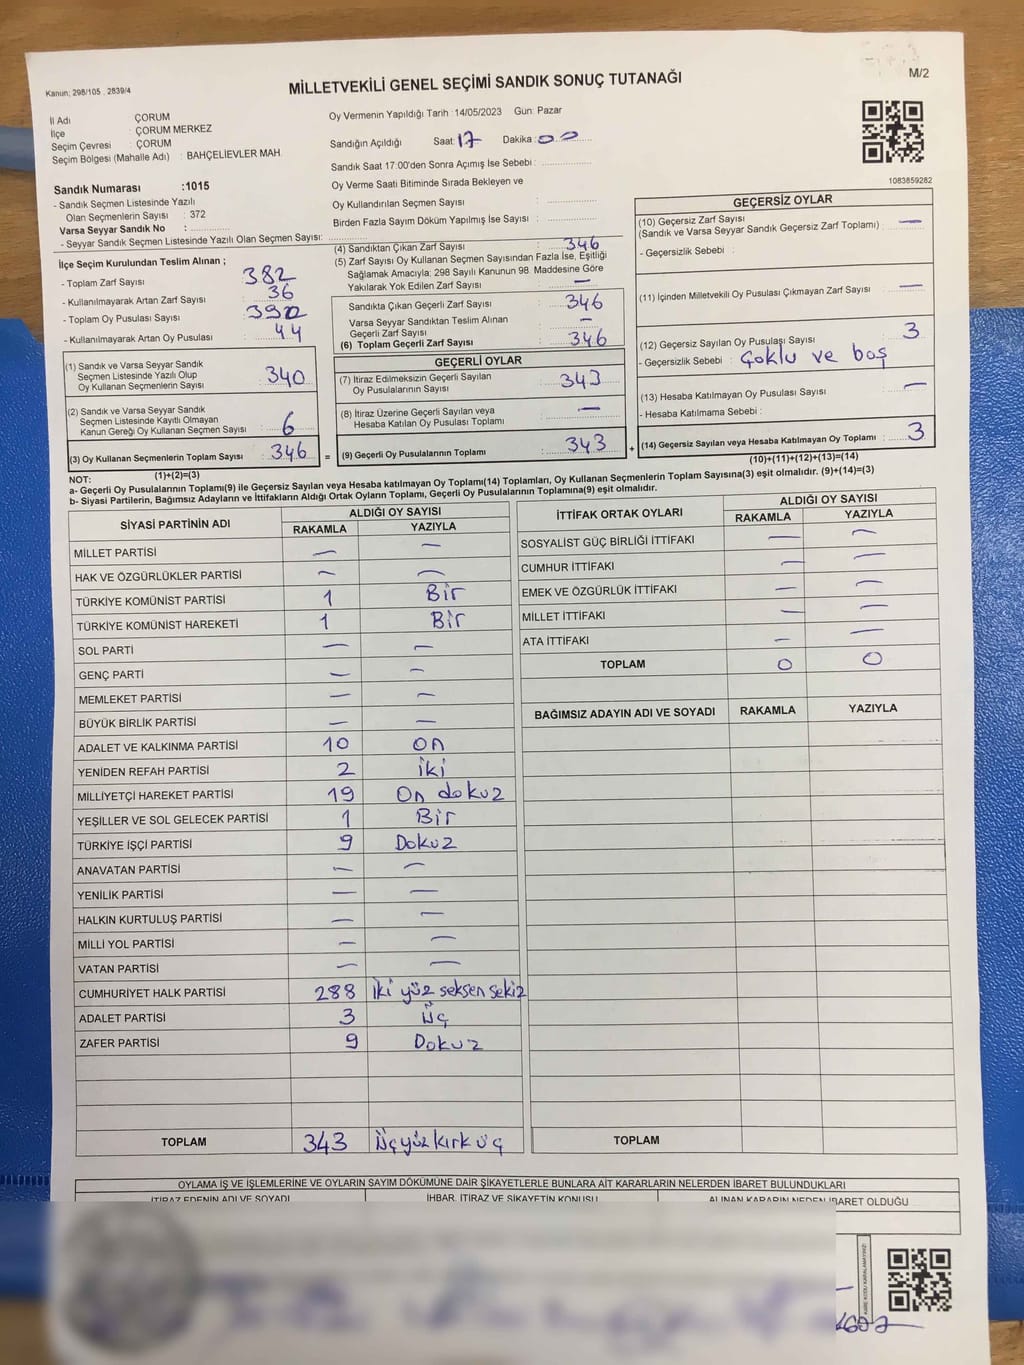 Kanun: 298/105 , 2839/4
MİLLETVEKİLİ GENEL SEÇİMİ SANDIK SONUÇ TUTANAĞI
M/2
İl Adı : ÇORUM
İlçe : ÇORUM MERKEZ
Seçim Çevresi : ÇORUM
Seçim Bölgesi (Mahalle Adı) : BAHÇELİEVLER MAH.
Sandık Numarası :1015
- Sandık Seçmen Listesinde Yazılı
Olan Seçmenlerin Sayısı : 372
Varsa Seyyar Sandık No :
- Seyyar Sandık Seçmen Listesinde Yazılı Olan Seçmen Sayısı:
Oy Vermenin Yapıldığı Tarih :14/05/2023 Gün: Pazar
Sandığın Açıldığı Saat: 17 Dakika: 00
Sandık Saat 17:00'den Sonra Açımış İse Sebebi :
Oy Verme Saati Bitiminde Sırada Bekleyen ve
Oy Kullandırılan Seçmen Sayısı :
Birden Fazla Sayım Döküm Yapılmış İse Sayısı :
1083859282
İlçe Seçim Kurulundan Teslim Alınan ;
- Toplam Zarf Sayısı : 382
- Kullanılmayarak Artan Zarf Sayısı : 36
- Toplam Oy Pusulası Sayısı : 390
- Kullanılmayarak Artan Oy Pusulası : 44
(1) Sandık ve Varsa Seyyar Sandık
Seçmen Listesinde Yazılı Olup
Oy Kullanan Seçmenlerin Sayısı : 340
(2) Sandık ve Varsa Seyyar Sandık
Seçmen Listesinde Kayıtlı Olmayan
Kanun Gereği Oy Kullanan Seçmen Sayısı : 6
(3) Oy Kullanan Seçmenlerin Toplam Sayısı : 346
(1)+(2)=(3)
(4) Sandıktan Çıkan Zarf Sayısı : 346
(5) Zarf Sayısı Oy Kullanan Seçmen Sayısından Fazla İse, Eşitliği
Sağlamak Amacıyla; 298 Sayılı Kanunun 98. Maddesine Göre
Yakılarak Yok Edilen Zarf Sayısı : —
Sandıkta Çıkan Geçerli Zarf Sayısı : 346
Varsa Seyyar Sandıktan Teslim Alınan
Geçerli Zarf Sayısı : —
(6) Toplam Geçerli Zarf Sayısı : 346
GEÇERLİ OYLAR
(7) İtiraz Edilmeksizin Geçerli Sayılan
Oy Pusulalarının Sayısı : 343
(8) İtiraz Üzerine Geçerli Sayılan veya
Hesaba Katılan Oy Pusulası Toplamı : —
= (9) Geçerli Oy Pusulalarının Toplamı : 343 +
GEÇERSİZ OYLAR
(10) Geçersiz Zarf Sayısı : —
(Sandık ve Varsa Seyyar Sandık Geçersiz Zarf Toplamı)
- Geçersizlik Sebebi :
(11) İçinden Milletvekili Oy Pusulası Çıkmayan Zarf Sayısı : —
(12) Geçersiz Sayılan Oy Pusulası Sayısı : 3
- Geçersizlik Sebebi : Çoklu ve boş
(13) Hesaba Katılmayan Oy Pusulası Sayısı : —
- Hesaba Katılmama Sebebi :
(14) Geçersiz Sayılan veya Hesaba Katılmayan Oy Toplamı : 3
(10)+(11)+(12)+(13)=(14)
NOT:
a- Geçerli Oy Pusulalarının Toplamı(9) ile Geçersiz Sayılan veya Hesaba katılmayan Oy Toplamı(14) Toplamları, Oy Kullanan Seçmenlerin Toplam Sayısına(3) eşit olmalıdır. (9)+(14)=(3)
b- Siyasi Partilerin, Bağımsız Adayların ve İttifakların Aldığı Ortak Oyların Toplamı, Geçerli Oy Pusulalarının Toplamına(9) eşit olmalıdır.
SİYASİ PARTİNİN ADI ALDIĞI OY SAYISI
RAKAMLA YAZIYLA
MİLLET PARTİSİ — —
HAK VE ÖZGÜRLÜKLER PARTİSİ — —
TÜRKİYE KOMÜNİST PARTİSİ 1 Bir
TÜRKİYE KOMÜNİST HAREKETİ 1 Bir
SOL PARTİ — —
GENÇ PARTİ — —
MEMLEKET PARTİSİ — —
BÜYÜK BİRLİK PARTİSİ — —
ADALET VE KALKINMA PARTİSİ 10 On
YENİDEN REFAH PARTİSİ 2 iki
MİLLİYETÇİ HAREKET PARTİSİ 19 On dokuz
YEŞİLLER VE SOL GELECEK PARTİSİ 1 Bir
TÜRKİYE İŞÇİ PARTİSİ 9 Dokuz
ANAVATAN PARTİSİ — —
YENİLİK PARTİSİ — —
HALKIN KURTULUŞ PARTİSİ — —
MİLLİ YOL PARTİSİ — —
VATAN PARTİSİ — —
CUMHURİYET HALK PARTİSİ 288 iki yüz seksen sekiz
ADALET PARTİSİ 3 üç
ZAFER PARTİSİ 9 Dokuz
TOPLAM 343 Üçyüzkırk üç
İTTİFAK ORTAK OYLARI ALDIĞI OY SAYISI
RAKAMLA YAZIYLA
SOSYALİST GÜÇ BİRLİĞİ İTTİFAKI — —
CUMHUR İTTİFAKI — —
EMEK VE ÖZGÜRLÜK İTTİFAKI — —
MİLLET İTTİFAKI — —
ATA İTTİFAKI — —
TOPLAM 0 0
BAĞIMSIZ ADAYIN ADI VE SOYADI RAKAMLA YAZIYLA
TOPLAM
OYLAMA İŞ VE İŞLEMLERİNE VE OYLARIN SAYIM DÖKÜMÜNE DAİR ŞİKAYETLERLE BUNLARA AİT KARARLARIN NELERDEN İBARET BULUNDUKLARI
İTİRAZ EDENİN ADI VE SOYADI İHBAR, İTİRAZ VE ŞİKAYETİN KONUSU ALINAN KARARIN NEDEN İBARET OLDUĞU
KARE KODU KARALAMAYINIZ!